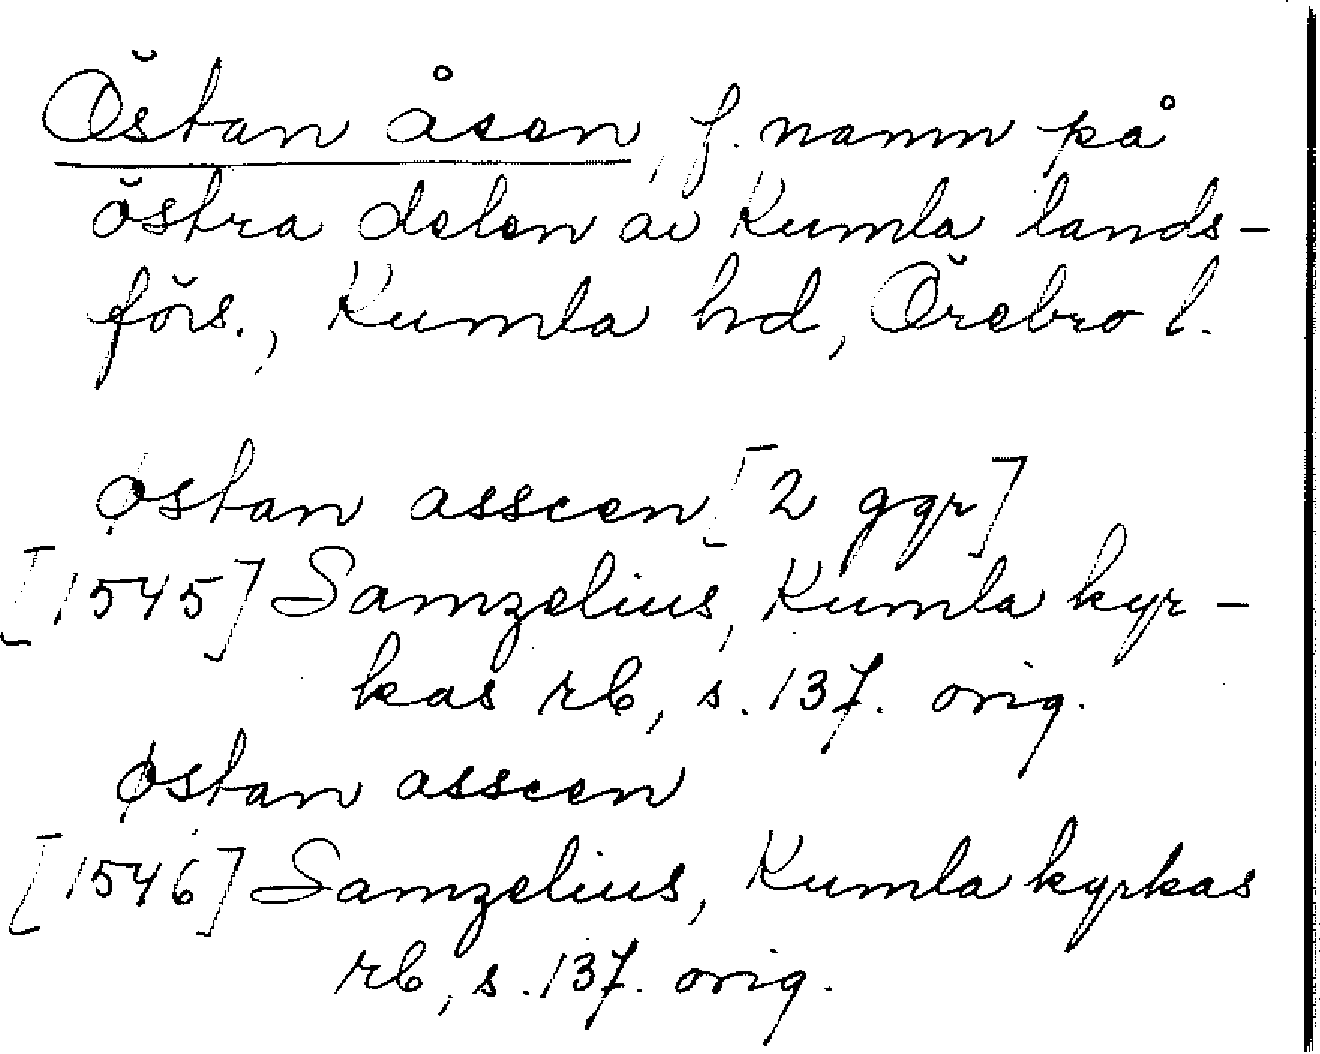 Östan åsen, f. namn på
östra delen av Kumla lands-
förs., Kumla hd, Örebro l.
østan asseen [2 ggr]
[1545] Samzelius, Kumla kyr-
kas rb, s. 137. orig.
østan asseen
[1546] Samzelius, Kumla kyrkas
rb, s. 137. orig.